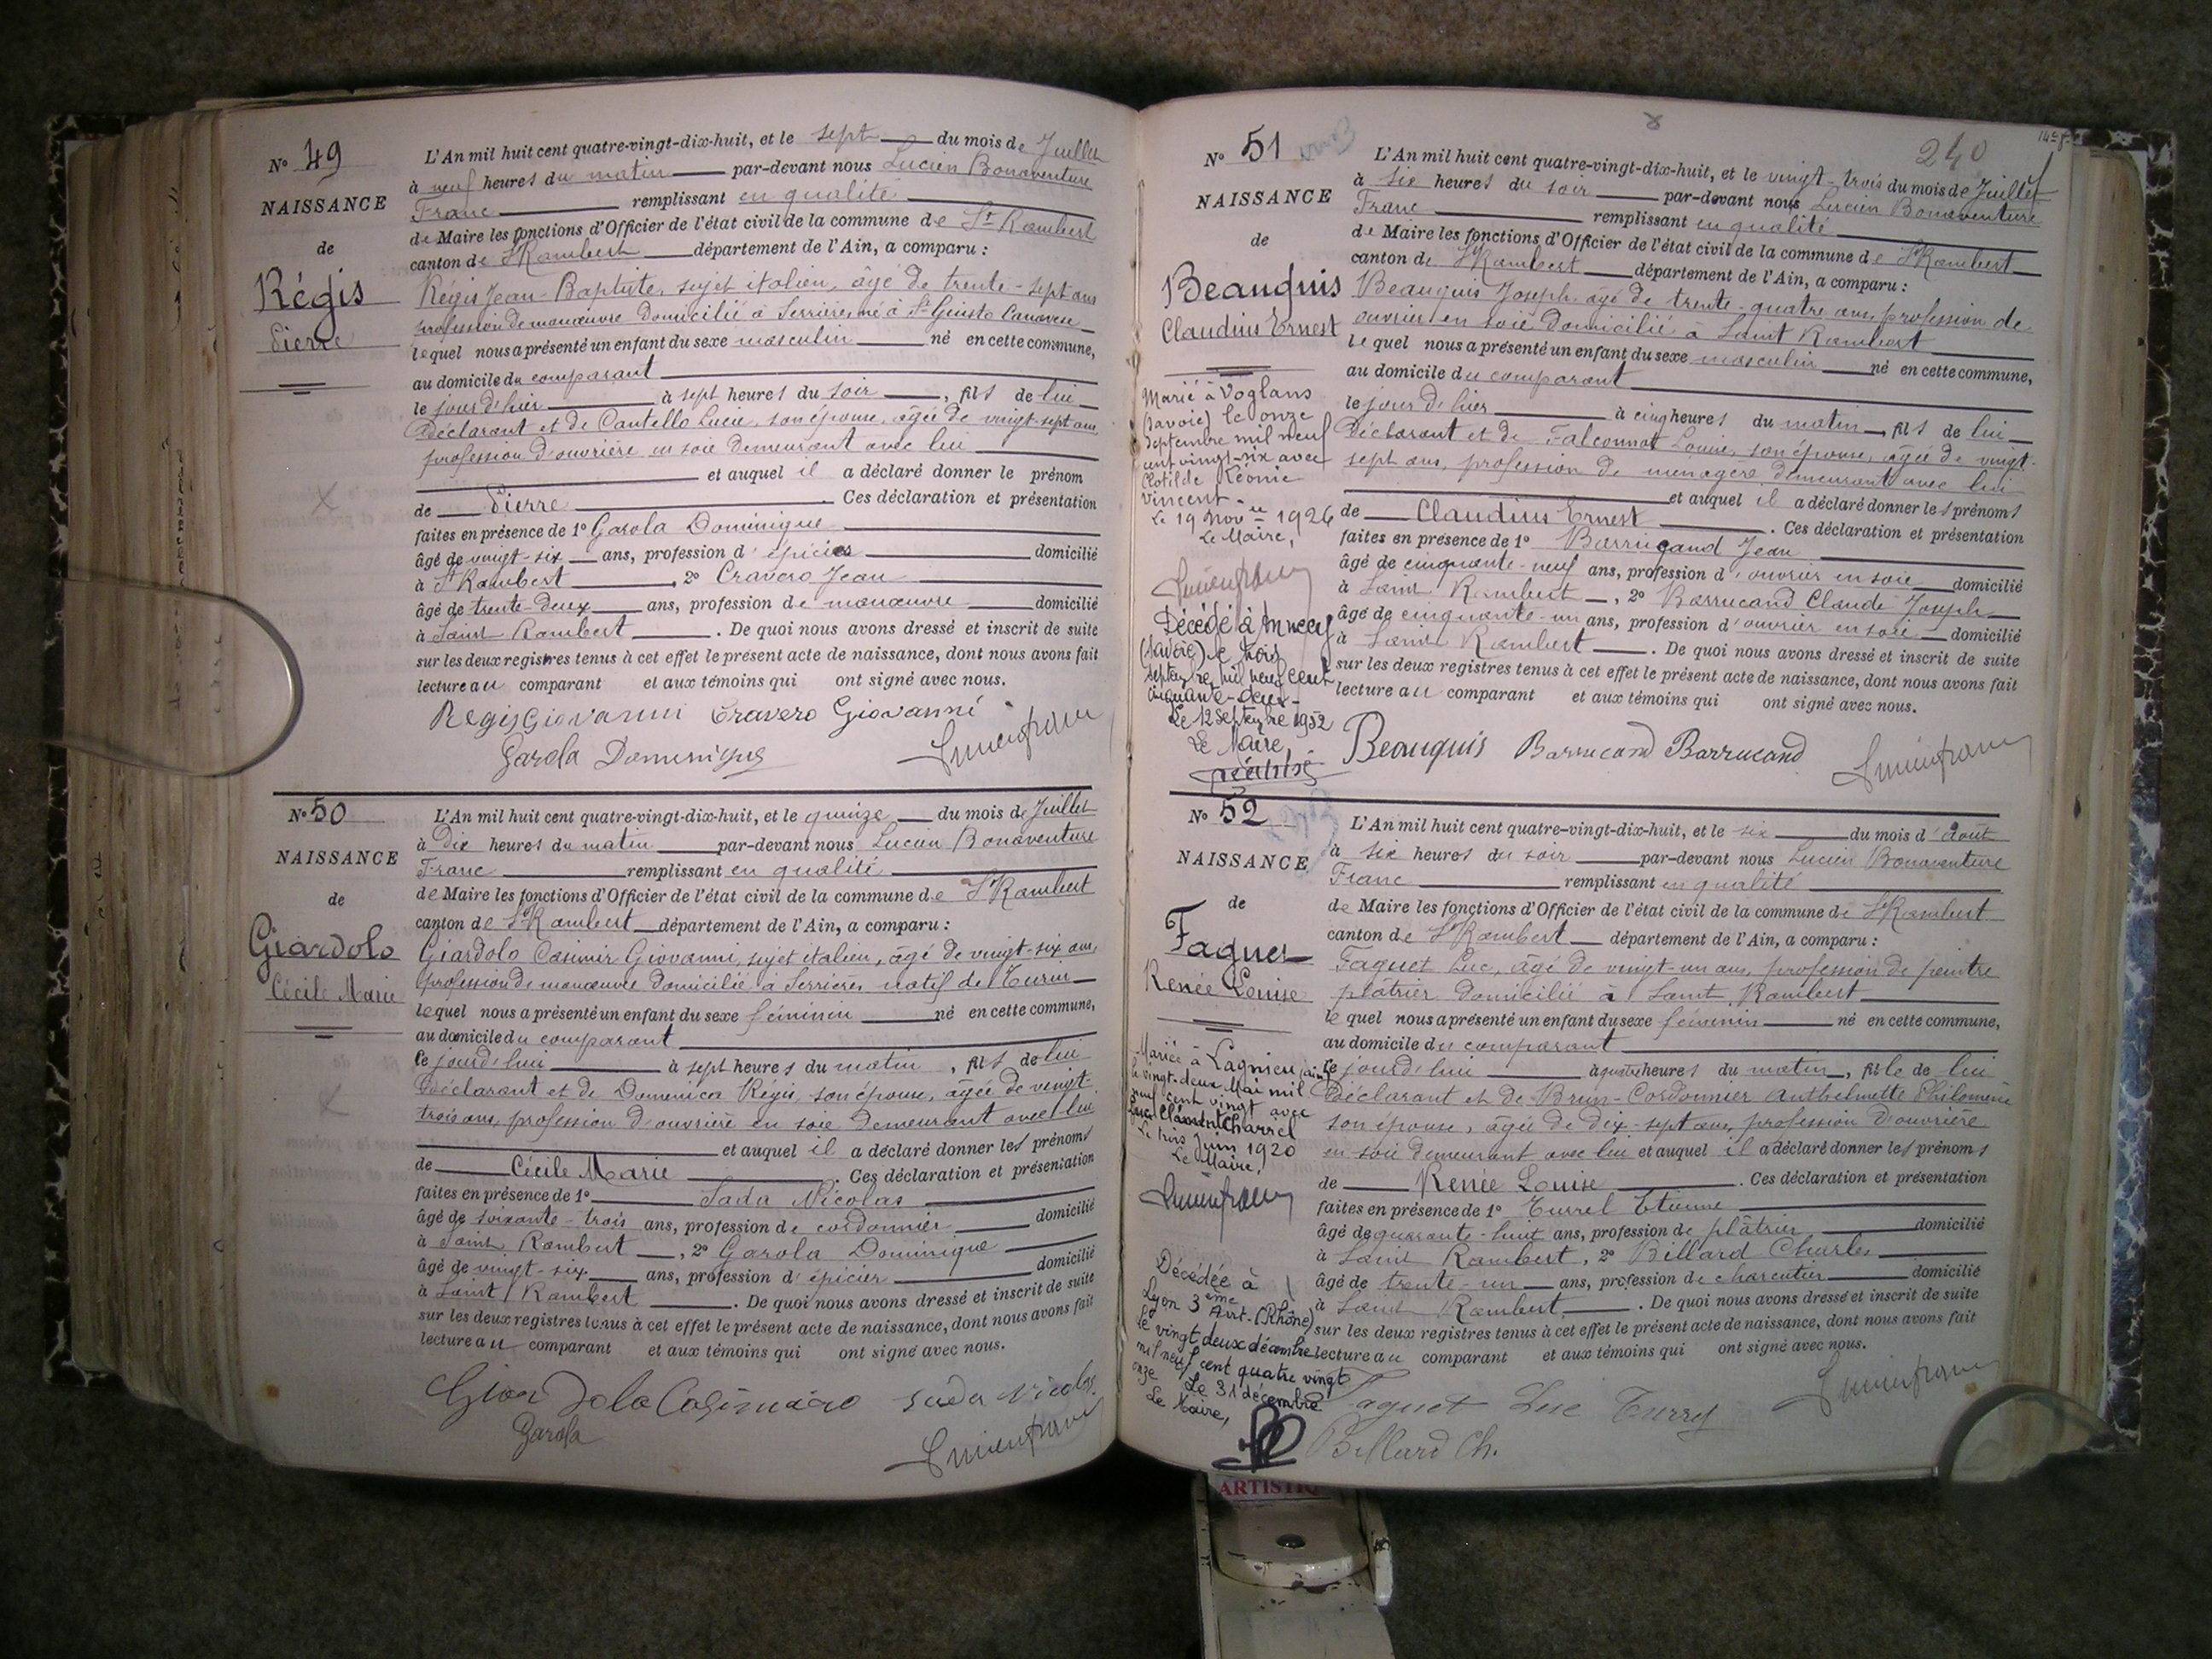 N° 49
NAISSANCE
de
Régis
Pierre
L'An mil huit cent quatre-vingt-dix-huit, et le sept du mois de Juillet
à neuf heures du matin par-devant nous Lucien Bonaventure
Franc remplissant en qualité
de Maire les fonctions d'Officier de l'état civil de la commune de St Rambert
canton de St Rambert département de l'Ain, a comparu :
Régis Jean-Baptiste, sujet italien, âgé de trente-sept ans
profession de manœuvre domicilié à Serrières, né à St Giusto Canavese
lequel nous a présenté un enfant du sexe masculin né en cette commune,
au domicile du comparant
le jour d'hier à sept heures du soir, fils de lui
Déclarant et de Cantello Lucie, son épouse, âgée de vingt-sept ans
profession d'ouvrière en soie demeurant avec lui
et auquel il a déclaré donner le prénom
de Pierre. Ces déclaration et présentation
faites en présence de 1° Garola Dominique
âgé de vingt-six ans, profession d'épicier domicilié
à St Rambert, 2° Cravero Jean
âgé de trente-deux ans, profession de manœuvre domicilié
à Saint Rambert. De quoi nous avons dressé et inscrit de suite
sur les deux registres tenus à cet effet le présent acte de naissance, dont nous avons fait
lecture au comparant et aux témoins qui ont signé avec nous.
Regis Giovanni Cravero Giovanni
Garola Dominique Lucien franc
N° 50
NAISSANCE
de
Giardolo
Cécile Marie
L'An mil huit cent quatre-vingt-dix-huit, et le quinze du mois de Juillet
à Dix heures du matin par-devant nous Lucien Bonaventure
Franc remplissant en qualité
de Maire les fonctions d'Officier de l'état civil de la commune de St Rambert
canton de St Rambert département de l'Ain, a comparu :
Giardolo Casimir Giovanni, sujet italien, âgé de vingt-six ans,
profession de manœuvre domicilié à Serrières natif de Turin
lequel nous a présenté un enfant du sexe féminin né en cette commune,
au domicile du comparant
le jourd'hui à sept heures du matin, fils de lui
Déclarant et de Domenica Régis, son épouse, âgée de vingt
trois ans, profession d'ouvrière en soie demeurant avec lui
et auquel il a déclaré donner les prénoms
de Cécile Marie. Ces déclaration et présentation
faites en présence de 1° Sada Nicolas
âgé de soixante-trois ans, profession de cordonnier domicilié
à Saint Rambert, 2° Garola Dominique
âgé de vingt-six ans, profession d'épicier domicilié
à Saint Rambert. De quoi nous avons dressé et inscrit de suite
sur les deux registres tenus à cet effet le présent acte de naissance, dont nous avons fait
lecture au comparant et aux témoins qui ont signé avec nous.
Giardolo Casimiro Sada Nicolas
Garola Lucien franc
240
N° 51
NAISSANCE
de
Beauquis
Claudius Ernest
Marié à Voglans
(Savoie) le onze
Septembre mil neuf
cent vingt-six avec
Clotilde Léonie
Vincent.
Le 19 Nov. 1926
Le Maire,
Lucien franc
Décédé à Annecy
(Savoie) le trois
Septembre mil neuf cent
cinquante-deux
Le 12 Septembre 1952
Le Maire,
L'An mil huit cent quatre-vingt-dix-huit, et le vingt-trois du mois de Juillet
à six heures du soir par-devant nous Lucien Bonaventure
Franc remplissant en qualité
de Maire les fonctions d'Officier de l'état civil de la commune de St Rambert
canton de St Rambert département de l'Ain, a comparu :
Beauquis Joseph âgé de trente-quatre ans, profession de
ouvrier en soie domicilié à Saint Rambert
lequel nous a présenté un enfant du sexe masculin né en cette commune,
au domicile du comparant
le jour d'hier à cinq heures du matin, fils de lui
Déclarant et de Falconnat Louise, son épouse, âgée de vingt-
sept ans, profession de ménagère demeurant avec lui
et auquel il a déclaré donner les prénoms
de Claudius Ernest. Ces déclaration et présentation
faites en présence de 1° Barrucand Jean
âgé de cinquante-neuf ans, profession d'ouvrier en soie domicilié
à Saint Rambert, 2° Barrucand Claude Joseph
âgé de cinquante-un ans, profession d'ouvrier en soie domicilié
à Saint Rambert. De quoi nous avons dressé et inscrit de suite
sur les deux registres tenus à cet effet le présent acte de naissance, dont nous avons fait
lecture au comparant et aux témoins qui ont signé avec nous.
Beauquis Barrucand Barrucand Lucien franc
N° 52
NAISSANCE
de
Faguet
Renée Louise
Mariée à Lagnieu (Ain)
le vingt-deux Mai mil
neuf cent vingt avec
Clément Charrel
Le trois Juin 1920
Le Maire,
Lucien franc
Décédée à
Lyon 3ème Arrt-(Rhône)
le vingt deux décembre
mil neuf cent quatre vingt
onze Le 31 décembre
Le Maire,
L'An mil huit cent quatre-vingt-dix-huit, et le six du mois d'Août
à six heures du soir par-devant nous Lucien Bonaventure
Franc remplissant en qualité
de Maire les fonctions d'Officier de l'état civil de la commune de St Rambert
canton de St Rambert département de l'Ain, a comparu :
Faguet Luc, âgé de vingt-un ans, profession de peintre
plâtrier domicilié à Saint Rambert
lequel nous a présenté un enfant du sexe féminin né en cette commune,
au domicile du comparant
le jourd'hui à quatre heures du matin, fille de lui
Déclarant et de Brun-Cordonnier Anthelmette Philomène
son épouse, âgée de dix-sept ans, profession d'ouvrière
en soie demeurant avec lui et auquel il a déclaré donner les prénoms
de Renée Louise. Ces déclaration et présentation
faites en présence de 1° Turrel Etienne
âgé de quarante-huit ans, profession de plâtrier domicilié
à Saint Rambert, 2° Billard Charles
âgé de trente-un ans, profession de charcutier domicilié
à Saint Rambert. De quoi nous avons dressé et inscrit de suite
sur les deux registres tenus à cet effet le présent acte de naissance, dont nous avons fait
lecture au comparant et aux témoins qui ont signé avec nous.
Faguet Luc Turrel Lucien franc
Billard Ch.